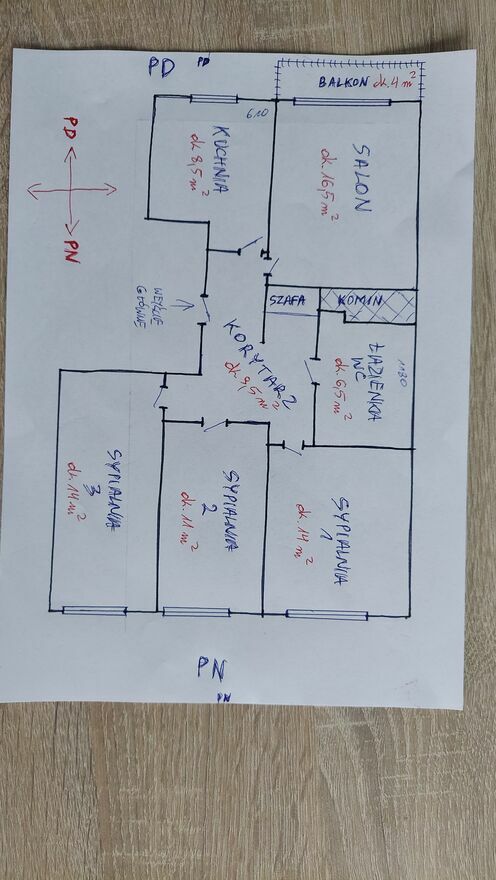 PD
PD
BALKON dk. 4 m²
PD
PN
610
KUCHNIA
dk 8,5 m²
SALON
dk. 16,5 m²
WEJŚCIE
GŁÓWNE
SZAFA
KOMIN
KORYTARZ
dk. 9,5 m²
ŁAZIENKA
WC
dk. 6,5 m²
1180
SYPIALNIA
3
dk. 14 m²
SYPIALNIA
2
dk. 11 m²
SYPIALNIA
1
dk. 14 m²
PN
PN